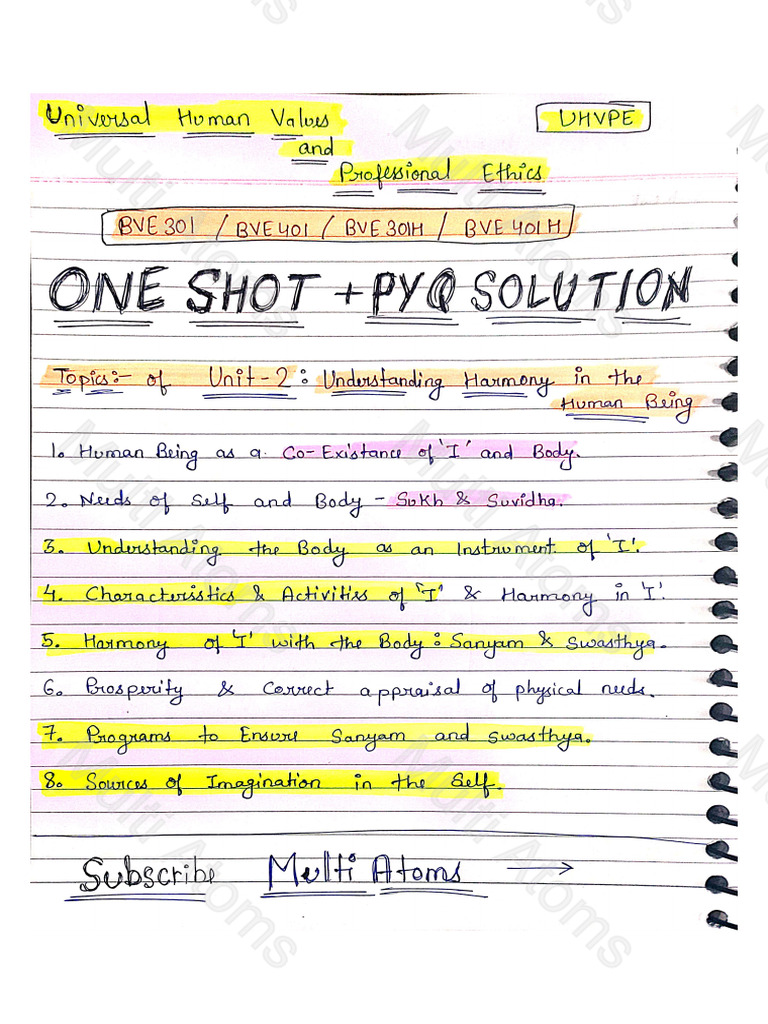 Universal Human Values
UHVPE
and
Professional Ethics
BVE301 / BVE401 / BVE301H / BVE401H
ONE SHOT + PYQ SOLUTION
Topics:- of Unit-2: Understanding Harmony in the
Human Being
1. Human Being as a Co-Existance of 'I' and Body.
2. Needs of Self and Body - Sukh & Suvidha.
3. Understanding the Body as an Instrument of 'I'.
4. Characteristics & Activities of 'I' & Harmony in 'I'.
5. Harmony of 'I' with the Body: Sanyam & Swasthya.
6. Prosperity & Correct appraisal of physical needs.
7. Programs to Ensure Sanyam and Swasthya.
8. Sources of Imagination in the Self.
Subscribe Multi Atoms →
Multi Atoms
Multi Atoms
Multi Atoms
Multi Atoms
Multi Atoms
Multi Atoms